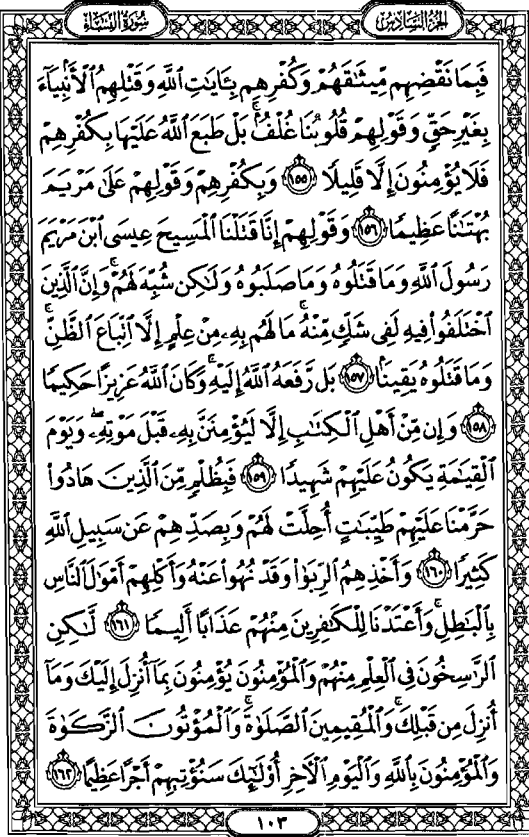 سورة النساء
الجزء السادس
فَبِمَا نَقْضِهِم مِّيثَٰقَهُمْ وَكُفْرِهِم بِـَٔايَٰتِ ٱللَّهِ وَقَتْلِهِمُ ٱلْأَنۢبِيَآءَ
بِغَيْرِ حَقٍّ وَقَوْلِهِمْ قُلُوبُنَا غُلْفٌۢ ۚ بَلْ طَبَعَ ٱللَّهُ عَلَيْهَا بِكُفْرِهِمْ
فَلَا يُؤْمِنُونَ إِلَّا قَلِيلًا ١٥٥ وَبِكُفْرِهِمْ وَقَوْلِهِمْ عَلَىٰ مَرْيَمَ
بُهْتَٰنًا عَظِيمًا ١٥٦ وَقَوْلِهِمْ إِنَّا قَتَلْنَا ٱلْمَسِيحَ عِيسَى ٱبْنَ مَرْيَمَ
رَسُولَ ٱللَّهِ وَمَا قَتَلُوهُ وَمَا صَلَبُوهُ وَلَٰكِن شُبِّهَ لَهُمْ ۚ وَإِنَّ ٱلَّذِينَ
ٱخْتَلَفُوا۟ فِيهِ لَفِى شَكٍّ مِّنْهُ ۚ مَا لَهُم بِهِۦ مِنْ عِلْمٍ إِلَّا ٱتِّبَاعَ ٱلظَّنِّ ۚ
وَمَا قَتَلُوهُ يَقِينًۢا ١٥٧ بَل رَّفَعَهُ ٱللَّهُ إِلَيْهِ ۚ وَكَانَ ٱللَّهُ عَزِيزًا حَكِيمًا
١٥٨ وَإِن مِّنْ أَهْلِ ٱلْكِتَٰبِ إِلَّا لَيُؤْمِنَنَّ بِهِۦ قَبْلَ مَوْتِهِۦ ۖ وَيَوْمَ
ٱلْقِيَٰمَةِ يَكُونُ عَلَيْهِمْ شَهِيدًا ١٥٩ فَبِظُلْمٍ مِّنَ ٱلَّذِينَ هَادُوا۟
حَرَّمْنَا عَلَيْهِمْ طَيِّبَٰتٍ أُحِلَّتْ لَهُمْ وَبِصَدِّهِمْ عَن سَبِيلِ ٱللَّهِ
كَثِيرًا ١٦٠ وَأَخْذِهِمُ ٱلرِّبَوٰا۟ وَقَدْ نُهُوا۟ عَنْهُ وَأَكْلِهِمْ أَمْوَٰلَ ٱلنَّاسِ
بِٱلْبَٰطِلِ ۚ وَأَعْتَدْنَا لِلْكَٰفِرِينَ مِنْهُمْ عَذَابًا أَلِيمًا ١٦١ لَّٰكِنِ
ٱلرَّٰسِخُونَ فِى ٱلْعِلْمِ مِنْهُمْ وَٱلْمُؤْمِنُونَ يُؤْمِنُونَ بِمَآ أُنزِلَ إِلَيْكَ وَمَآ
أُنزِلَ مِن قَبْلِكَ ۚ وَٱلْمُقِيمِينَ ٱلصَّلَوٰةَ ۚ وَٱلْمُؤْتُونَ ٱلزَّكَوٰةَ
وَٱلْمُؤْمِنُونَ بِٱللَّهِ وَٱلْيَوْمِ ٱلْءَاخِرِ أُو۟لَٰٓئِكَ سَنُؤْتِيهِمْ أَجْرًا عَظِيمًا ١٦٢
١٠٣